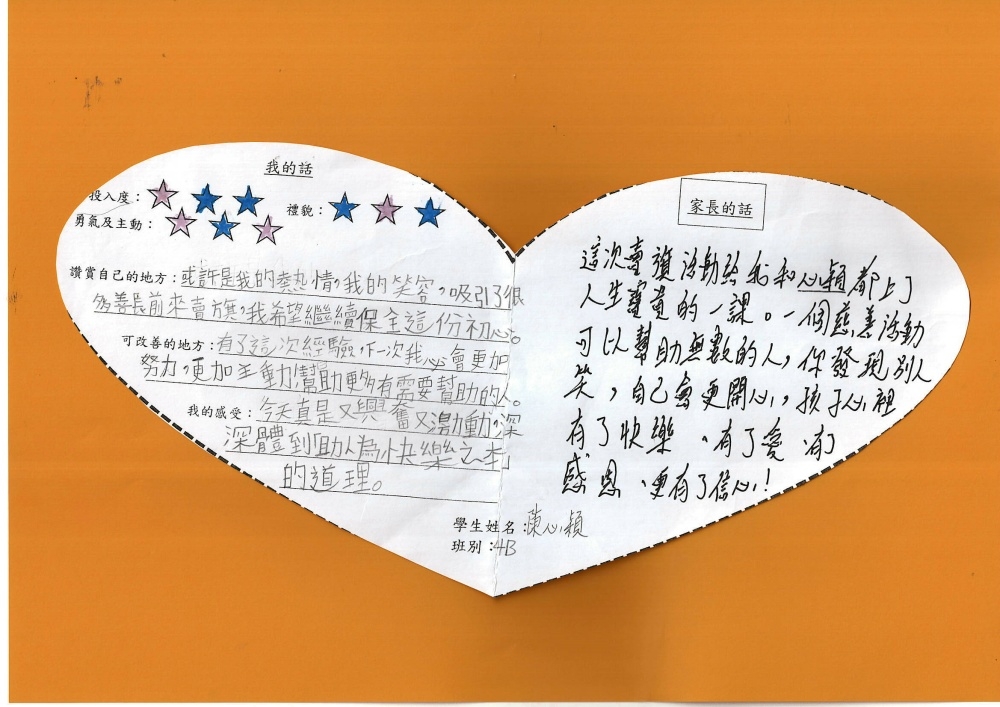 我的話
投入度：
禮貌：
勇氣及主動：
讚賞自己的地方：或許是我的熱情，我的笑容，吸引了很
多善長前來賣旗，我希望繼續保全這份初心。
可改善的地方：有了這次經驗，下一次我必會更加
努力，更加主動幫助更多有需要幫助的人。
我的感受：今天真是又興奮又激動，深
深體到「助人為快樂之本」
的道理。
家長的話
這次賣旗活動給我和心穎都上了
人生寶貴的一課。一個慈善活動
可以幫助無數的人，你發現別人
笑，自己會更開心，孩子心裡
有了快樂、有了愛、有了
感恩、更有了信心！
學生姓名：陳心穎
班別：4B